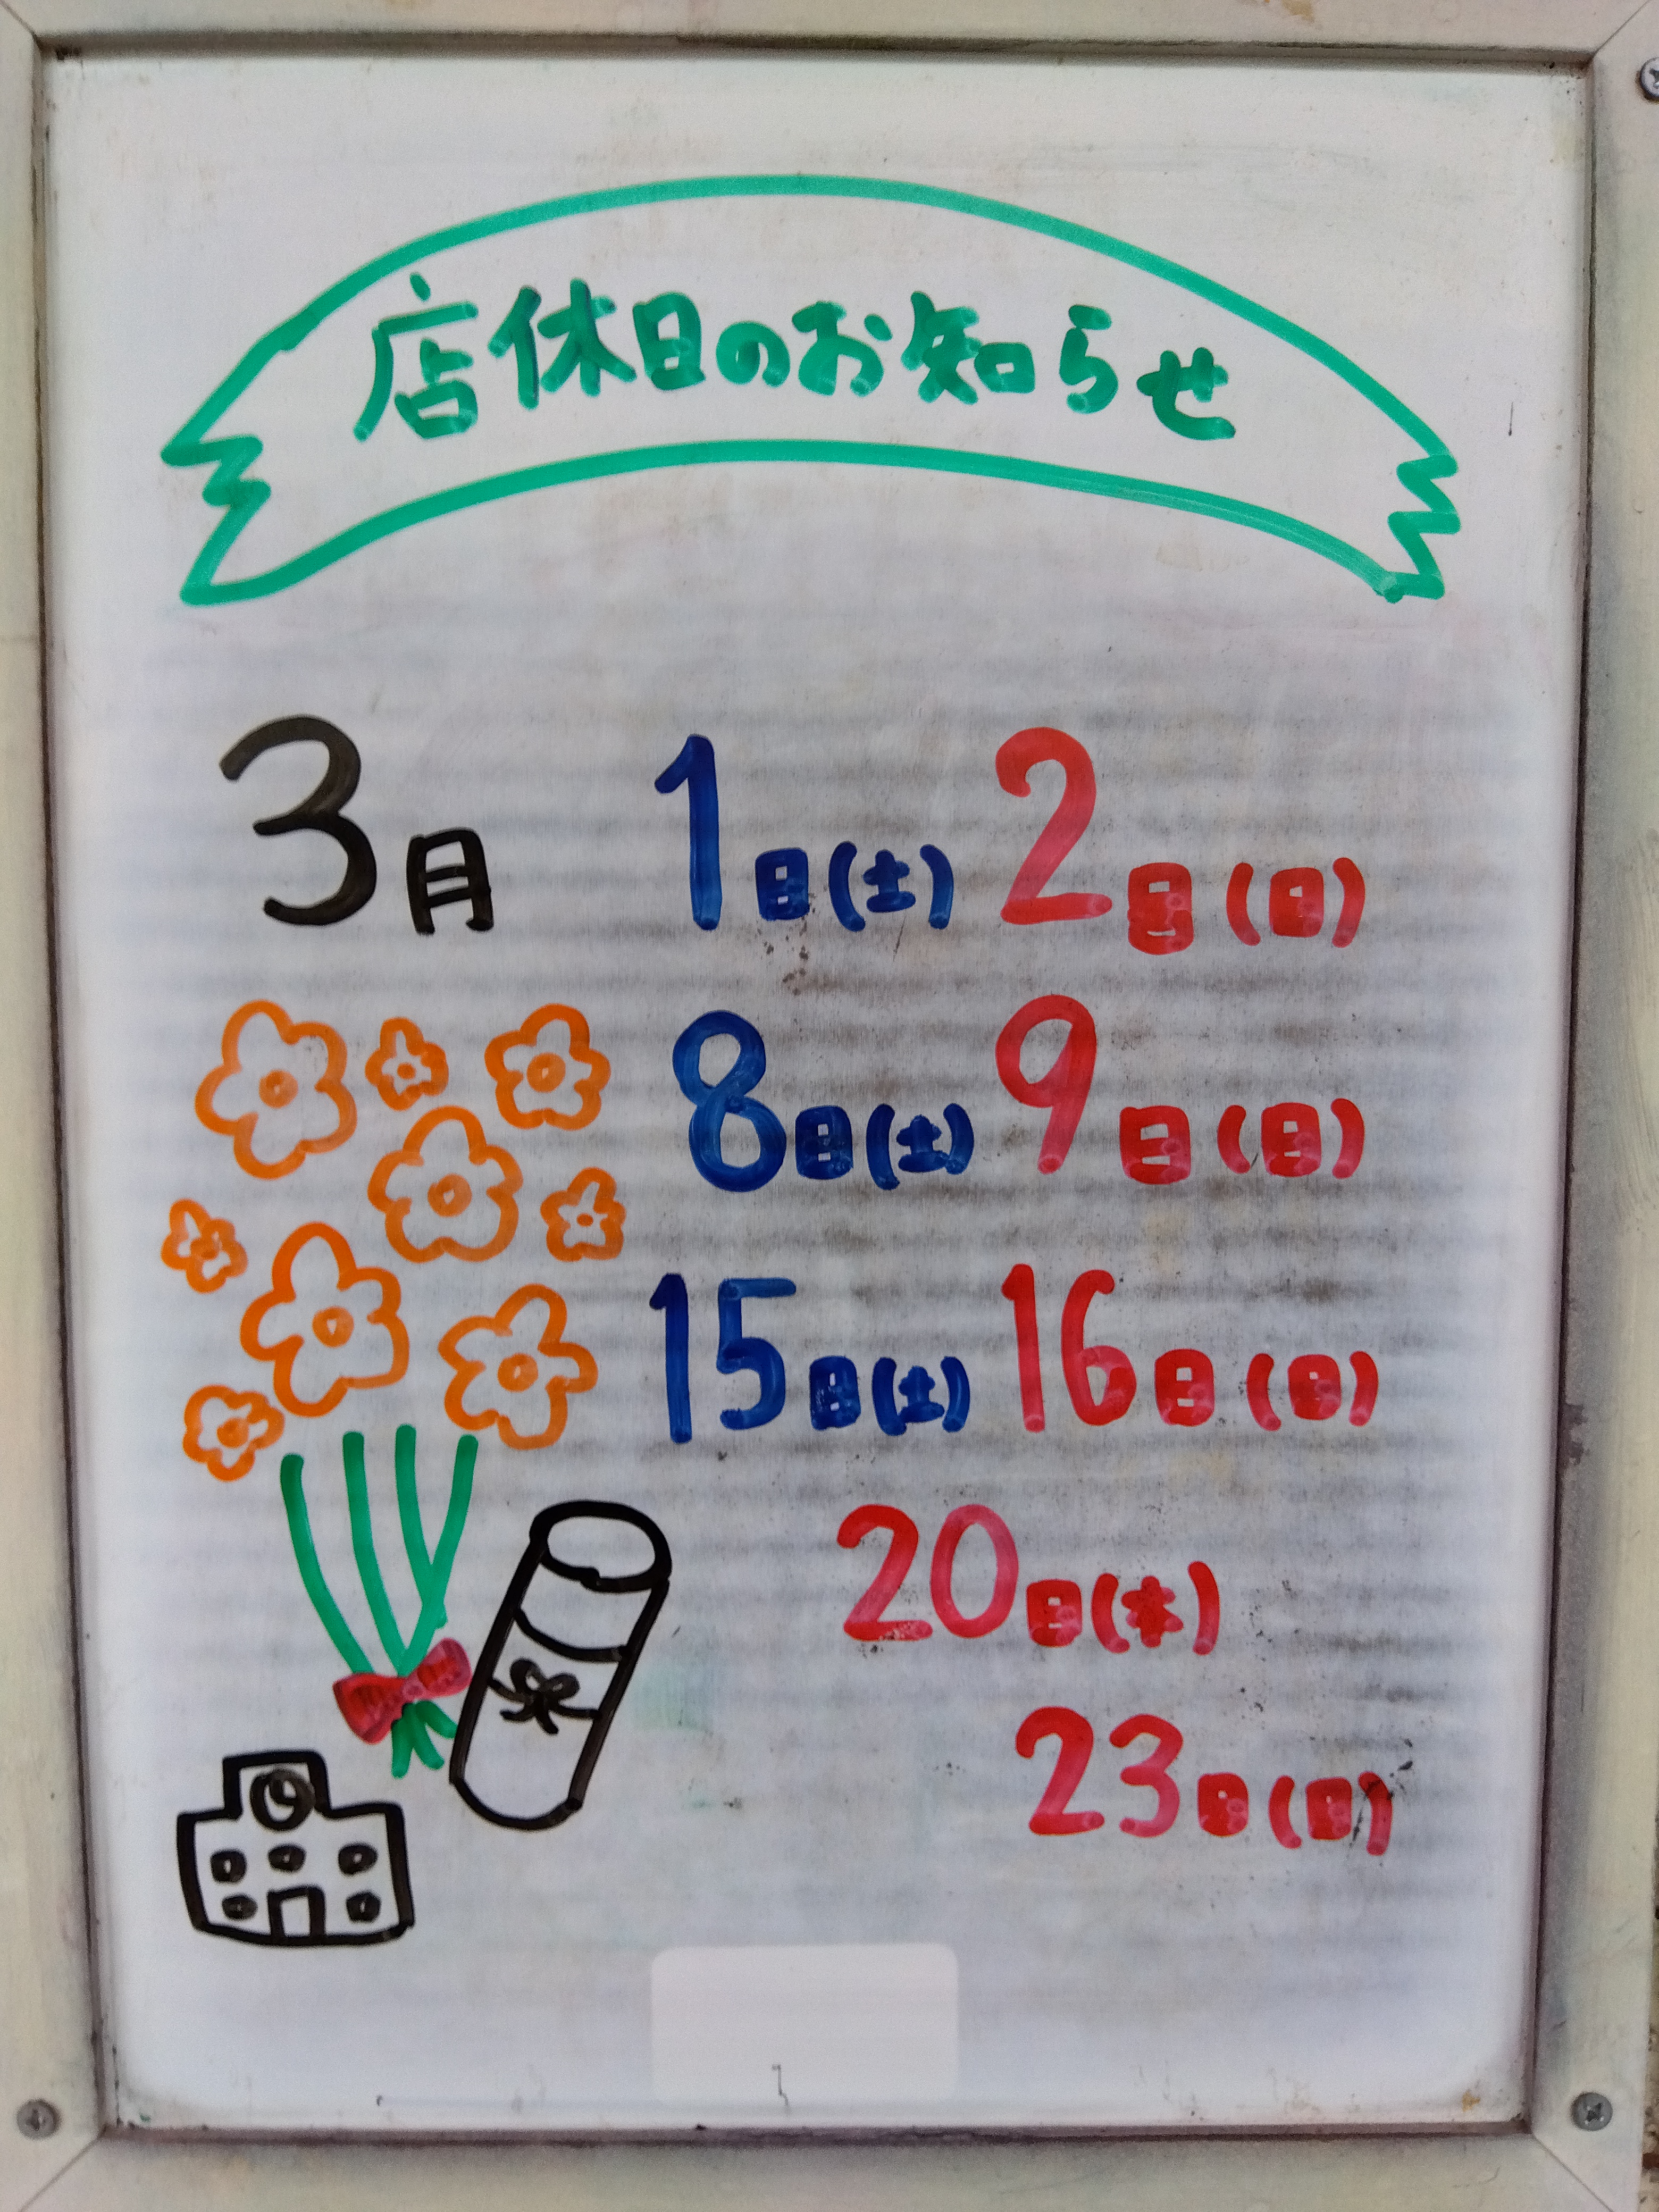 店休日のお知らせ
3月 1日(土) 2日(日)
8日(土) 9日(日)
15日(土) 16日(日)
20日(木)
23日(日)